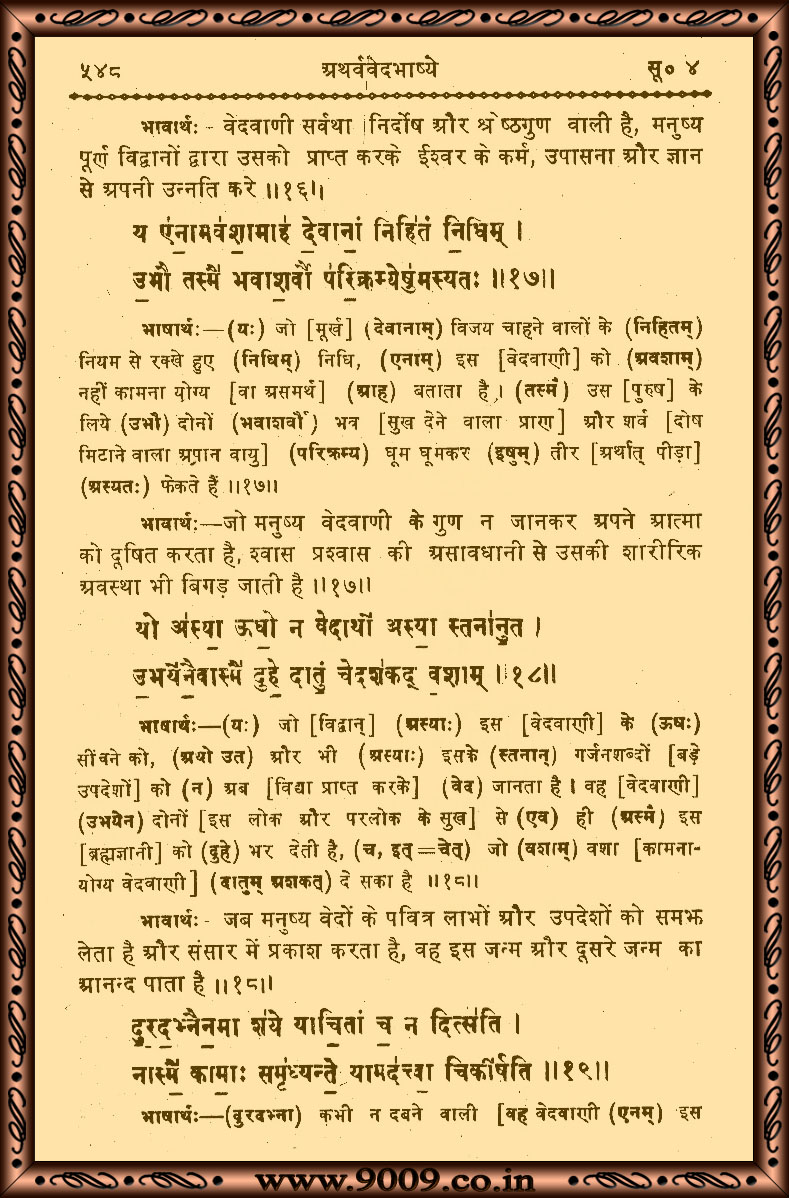 ५४८ अथर्ववेदभाष्ये सू० ४
भावार्थः - वेदवाणी सर्वथा निर्दोष और श्रेष्ठगुण वाली है, मनुष्य
पूर्ण विद्वानों द्वारा उसको प्राप्त करके ईश्वर के कर्म, उपासना और ज्ञान
से अपनी उन्नति करे ॥१६॥
य ए॑ना॒मव॑शा॒माह॑ दे॒वानां॒ निहि॑तं नि॒धिम् ।
उ॒भौ तस्मै॑ भवाश॒र्वौ प॑रि॒क्रम्येषु॑मस्यतः ॥१७॥
भाषार्थः—(यः) जो [मूर्ख] (देवानाम्) विजय चाहने वालों के (निहितम्)
नियम से रक्खे हुए (निधिम्) निधि, (एनाम्) इस [वेदवाणी] को (अवशाम्)
नहीं कामना योग्य [वा असमर्थ] (आह) बताता है। (तस्मै) उस [पुरुष] के
लिये (उभौ) दोनों (भवाशर्वौ) भव [सुख देने वाला प्राण] और शर्व [दोष
मिटाने वाला अपान वायु] (परिक्रम्य) घूम घूमकर (इषुम्) तीर [अर्थात् पीड़ा]
(अस्यतः) फेकते हैं ॥१७॥
भावार्थः—जो मनुष्य वेदवाणी के गुण न जानकर अपने आत्मा
को दूषित करता है, श्वास प्रश्वास की असावधानी से उसकी शारीरिक
अवस्था भी बिगड़ जाती है ॥१७॥
यो अ॑स्या॒ ऊधो॒ न वेदाथो॑ अस्या॒ स्तना॑नु॒त ।
उ॒भये॑नै॒वास्मै॑ दुहे॒ दातुं॒ चेदश॑कद् व॒शाम् ॥१८॥
भाषार्थः—(यः) जो [विद्वान्] (अस्याः) इस [वेदवाणी] के (ऊधः)
सींचने को, (अथो उत) और भी (अस्याः) इसके (स्तनान्) गर्जनशब्दों [बड़े
उपदेशों] को (न) अब [विद्या प्राप्त करके] (वेद) जानता है। वह [वेदवाणी]
(उभयेन) दोनों [इस लोक और परलोक के सुख] से (एव) ही (अस्मै) इस
[ब्रह्मज्ञानी] को (दुहे) भर देती है, (च, इत्=चेत्) जो (वशाम्) वशा [कामना-
योग्य वेदवाणी] (दातुम् अशकत्) दे सका है ॥१८॥
भावार्थः - जब मनुष्य वेदों के पवित्र लाभों और उपदेशों को समझ
लेता है और संसार में प्रकाश करता है, वह इस जन्म और दूसरे जन्म का
आनन्द पाता है ॥१८॥
दु॒र॒द॒भ्नैन॒मा श॑ये याचि॒तां च॒ न दित्स॑ति ।
नास्मै॒ कामाः॒ समृ॑ध्यन्ते॒ यामद॑त्त्वा॒ चिकी॑र्षति ॥१९॥
भाषार्थः—(दुरदभ्ना) कभी न दबने वाली [वह वेदवाणी (एनम्) इस
www.9009.co.in